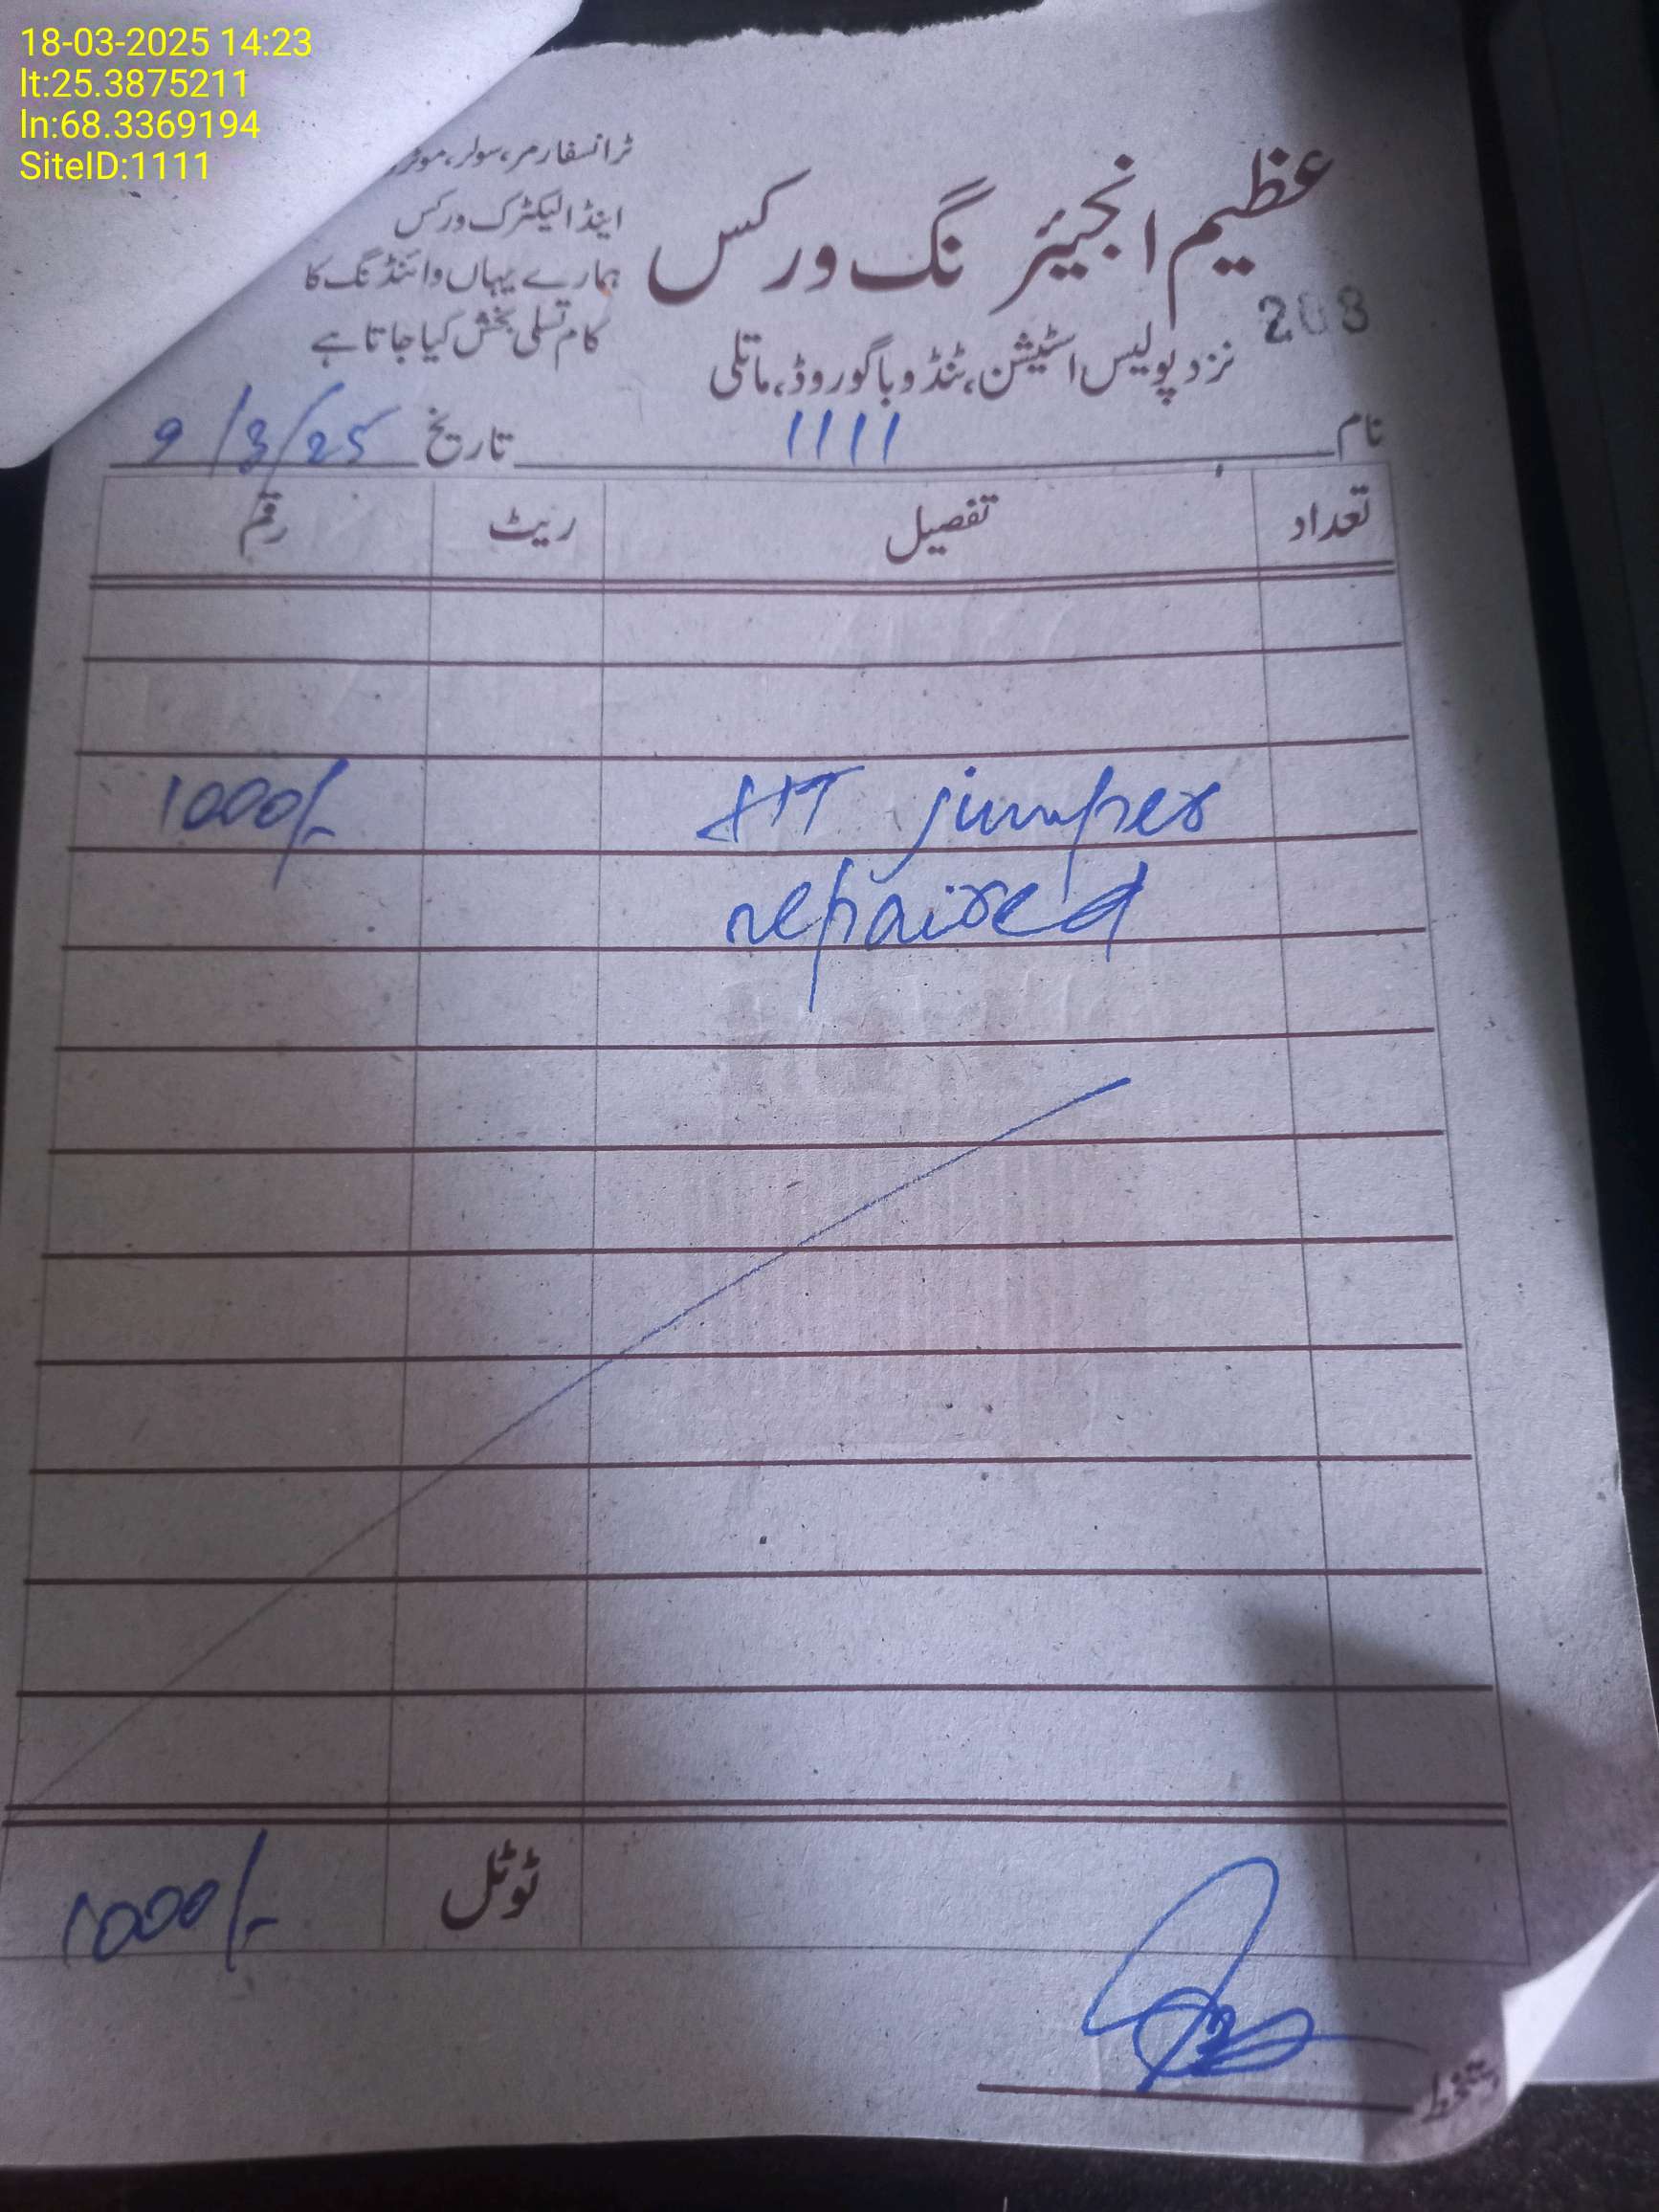 18-03-2025 14:23
lt:25.3875211
ln:68.3369194
SiteID:1111
عظیم انجیئر نگ ورکس
ٹرانسفارمر، سولر، موٹر
اینڈ الیکٹرک ورکس
ہمارے یہاں وائنڈنگ کا
کام تسلی بخش کیا جاتا ہے
208
نزد پولیس اسٹیشن، ٹنڈو باگو روڈ، ماتلی
نام 1111 تاریخ 9/3/25
تعداد تفصیل ریٹ رقم
HT jumper 1000/-
repaired
ٹوٹل 1000/-
دستخط